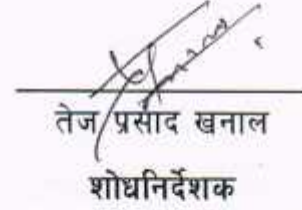 तेज प्रसाद खनाल
शोधनिर्देशक